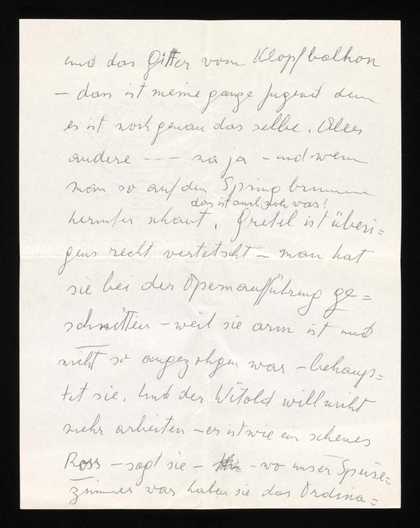 und das Gitter vom Klopfbalkon
– das ist meine ganze Jugend denn
es ist noch genau das selbe. Alles
andere --- na ja – und wenn
man so auf den Springbrunnen
das ist auch noch was!
herunter schaut. Gretel ist übri=
gens recht vertetscht – man hat
sie bei der Opernaufführung ge=
schnitten – weil sie arm ist und
nicht so angezogen war – behaup=
tet sie. Und der Witold will nicht
mehr arbeiten – er ist wie ein scheues
Ross – sagt sie – wo unser Speise=
zimmer war haben sie das Ordina=